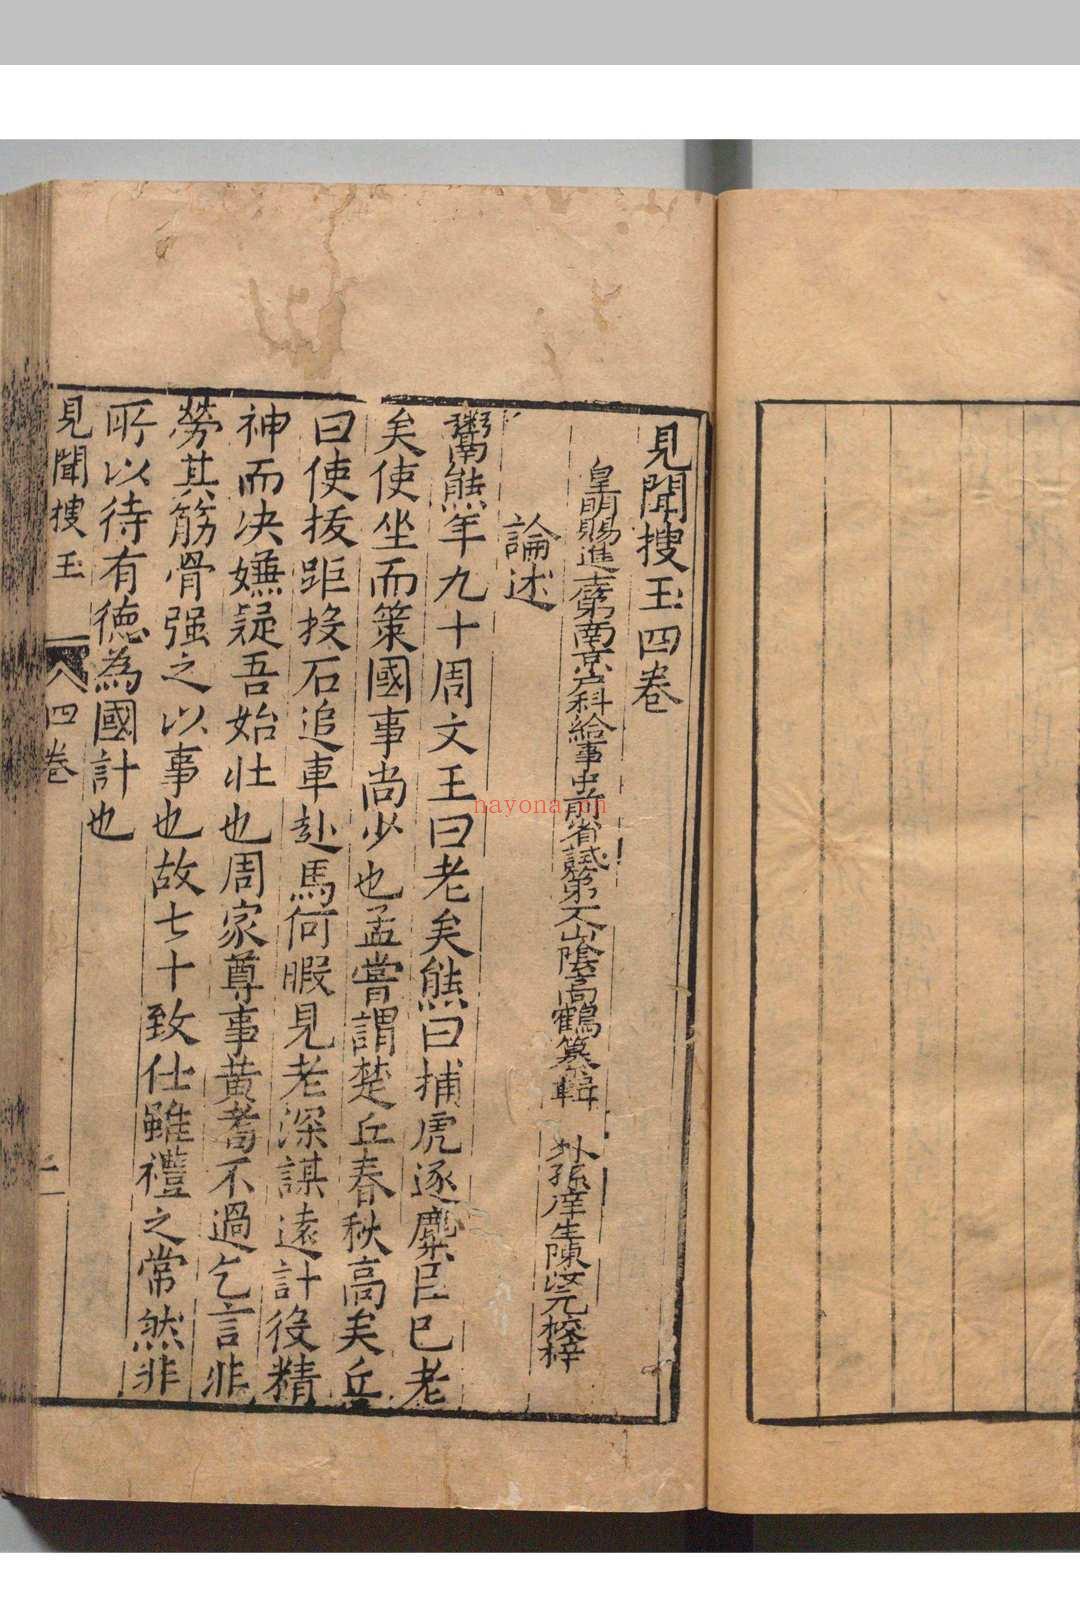 見聞搜玉四卷
皇明賜進士第南京户科給事中前省試第一人山隂高鶴纂輯 外孫庠生陳汝元校梓
論述
鬻熊年九十周文王曰老矣熊曰捕虎逐麋臣已老
矣使坐而策國事尚少也孟嘗謂楚丘春秋高矣丘
曰使拔距投石追車赴馬何暇見老深謀遠計役精
神而决嫌疑吾始壮也周家尊事黄耉不過乞言非
勞其筋骨强之以事也故七十致仕雖禮之常然非
所以待有德為國計也
見聞搜玉 四卷 一
nayona.cn